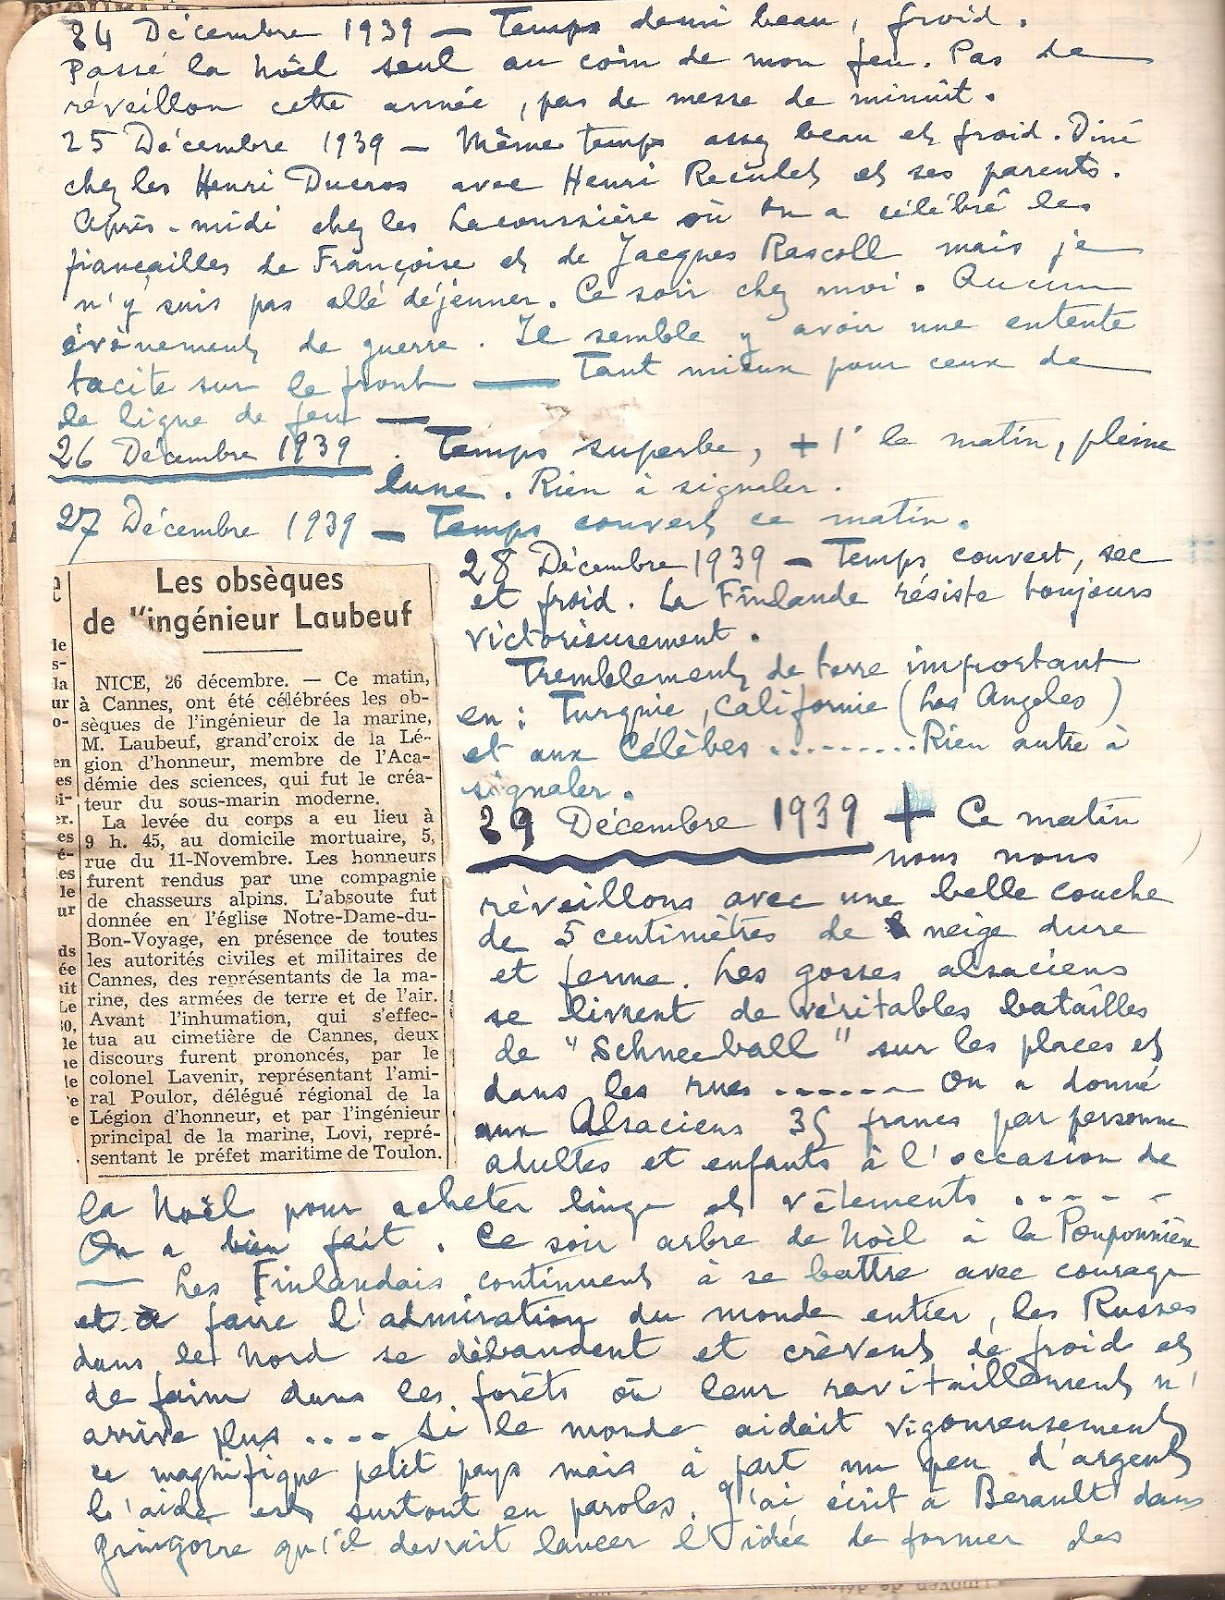 24 Décembre 1939 — Temps demi beau, froid.
Passé la Noël seul au coin de mon feu. Pas de
réveillon cette année, pas de messe de minuit.
25 Décembre 1939 — Même temps assez beau et froid. Diné
chez les Henri Ducros avec Henri et ses parents.
Après-midi chez les Lacoussière où on a célébré les
fiançailles de Françoise et de Jacques Rascoll mais je
n'y suis pas allé déjeuner. Ce soir chez moi. Aucun
évènement de guerre. Il semble y avoir une entente
tacite sur le front — Tant mieux pour ceux de
la ligne de feu —
26 Décembre 1939. Temps superbe, + 1° le matin, pleine
lune. Rien à signaler.
27 Décembre 1939 — Temps couvert ce matin.
28 Décembre 1939 — Temps couvert, sec
et froid. La Finlande résiste toujours
victorieusement.
Tremblement de terre important
en : Turquie, Californie (Los Angeles)
et aux Célèbes ......... Rien autre à
signaler.
29 Décembre 1939 + Ce matin
nous nous
réveillons avec une belle couche
de 5 centimètres de neige dure
et ferme. Les gosses alsaciens
se livrent de véritables batailles
de "Schneeball" sur les places et
dans les rues ....... On a donné
aux Alsaciens 35 francs par personne
adultes et enfants à l'occasion de
la Noël pour acheter linge et vêtements .....
On a bien fait. Ce soir arbre de Noël à la Pouponnière
— Les Finlandais continuent à se battre avec courage
et à faire l'admiration du monde entier, les Russes
dans le Nord se débandent et crèvent de froid et
de faim dans les forêts où leur ravitaillement n'
arrive plus .... Si le monde aidait vigoureusement
ce magnifique petit pays mais à part un peu d'argent
l'aide est surtout en paroles. J'ai écrit à Berault dans
Gringoire qu'il devrait lancer l'idée de former des
Les obsèques
de l'ingénieur Laubeuf
NICE, 26 décembre. — Ce matin,
à Cannes, ont été célébrées les ob-
sèques de l'ingénieur de la marine,
M. Laubeuf, grand'croix de la Lé-
gion d'honneur, membre de l'Aca-
démie des sciences, qui fut le créa-
teur du sous-marin moderne.
La levée du corps a eu lieu à
9 h. 45, au domicile mortuaire, 5,
rue du 11-Novembre. Les honneurs
furent rendus par une compagnie
de chasseurs alpins. L'absoute fut
donnée en l'église Notre-Dame-du-
Bon-Voyage, en présence de toutes
les autorités civiles et militaires de
Cannes, des représentants de la ma-
rine, des armées de terre et de l'air.
Avant l'inhumation, qui s'effec-
tua au cimetière de Cannes, deux
discours furent prononcés, par le
colonel Lavenir, représentant l'ami-
ral Poulor, délégué régional de la
Légion d'honneur, et par l'ingénieur
principal de la marine, Lovi, repré-
sentant le préfet maritime de Toulon.